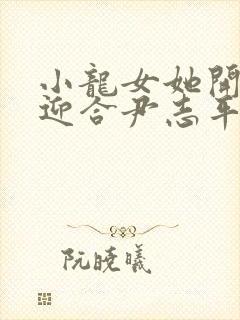 小龍女她開
迎合尹志平
阮曉曦